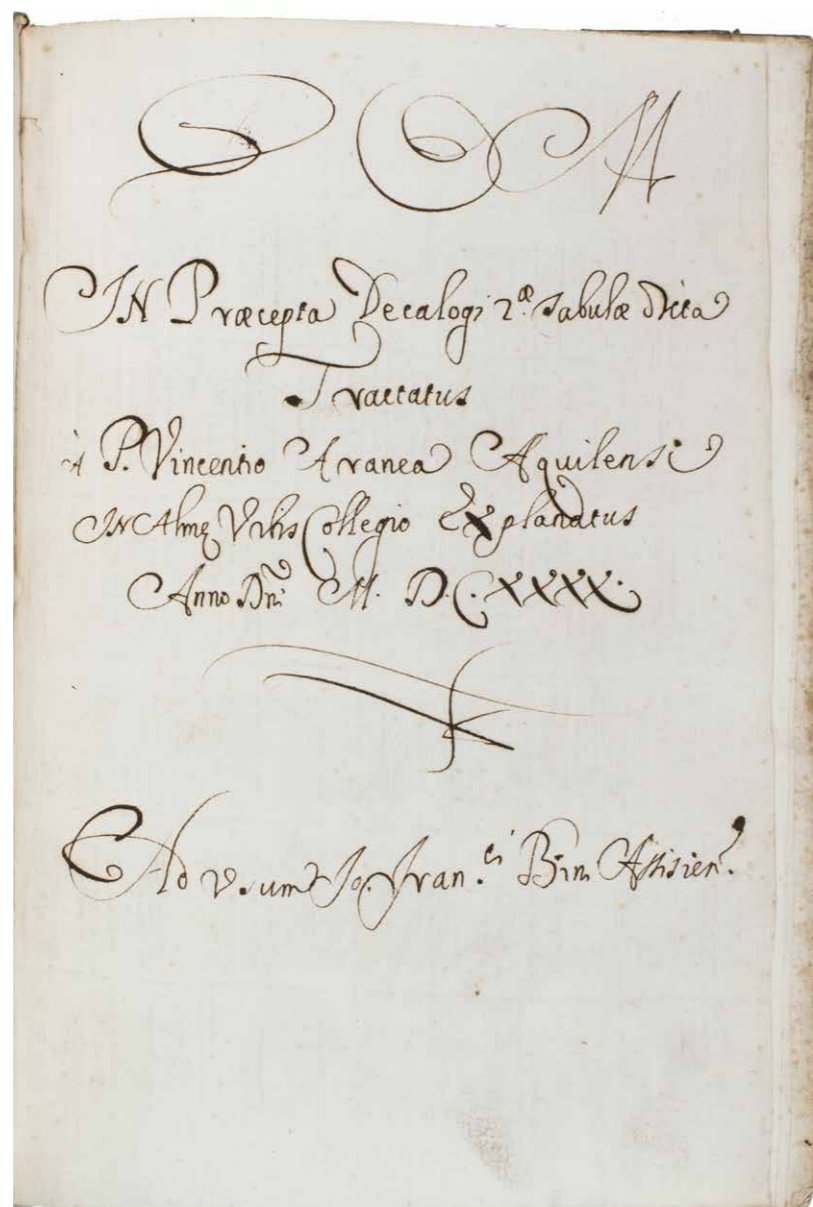 IN Præcepta Decalogi 2.æ Tabulæ Dicta
Tractatus
à P. Vincentio Aranea Aquilensi
IN Almę Vrbis Collegio Explanatus
Anno Dni M. D.C.XXXX.
Ad Vsum Jo. Fran.ci Bini Assisien.